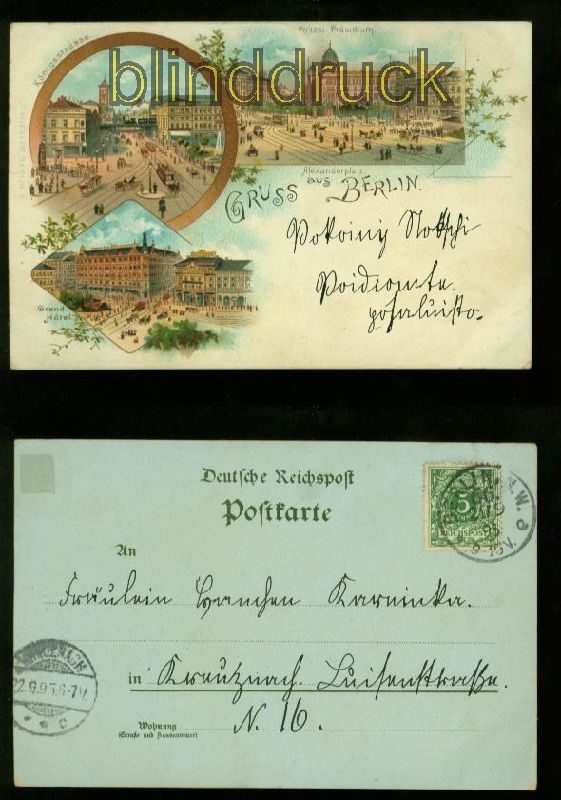 blinddruck
Königsstrasse.
Polizei-Präsidium.
Alexanderplatz.
GRUSS AUS BERLIN.
Grand Hôtel.
Pokoiniy Notschi
poschaluisto.
Deutsche Reichspost
Postkarte
An
Fräulein Hanchen Karninka.
in Kreutznach. Luisenstraße.
N. 16.
Wohnung
(Straße und Hausnummer)
5
REICHSPOST
BERLIN N.W.
22.9.95.6-7V.